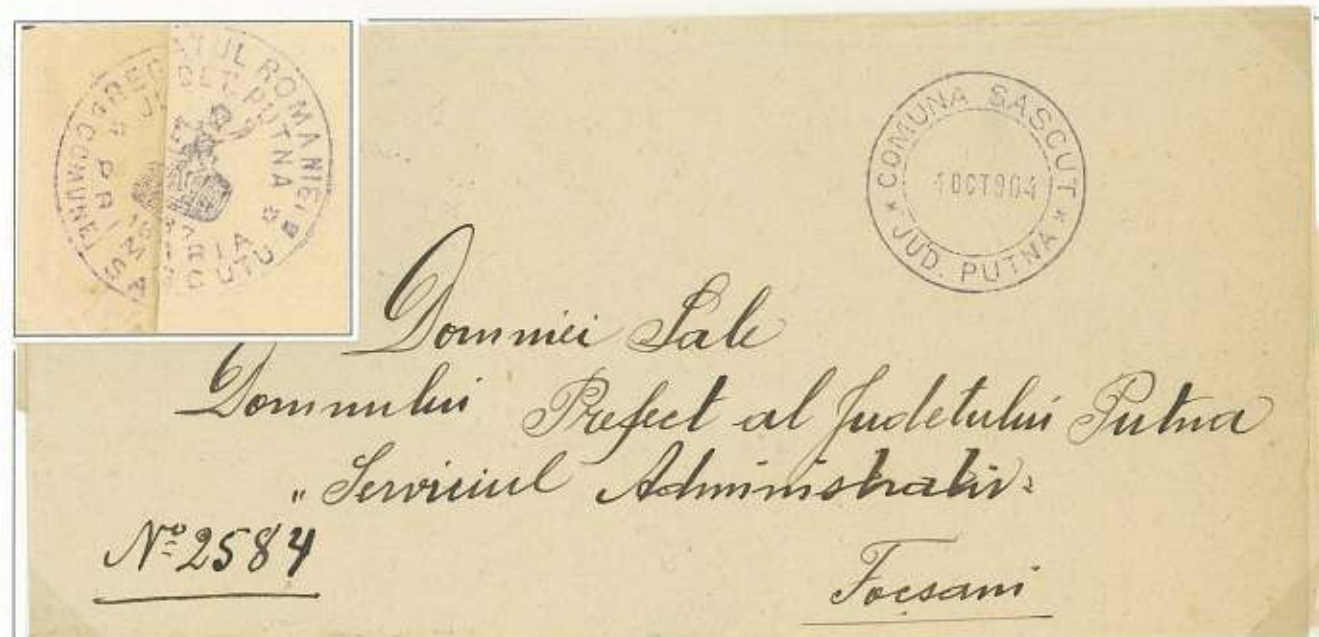 REGATUL ROMANIEI
JUDET. PUTNA
PRIMARIA
COMUNEI SASCUTU
COMUNA SASCUT
1 OCT 904
JUD. PUTNA
Domniei Sale
Domnului Prefect al Judetului Putna
„Serviciul Administrativ"
Nº 2584
Focsani